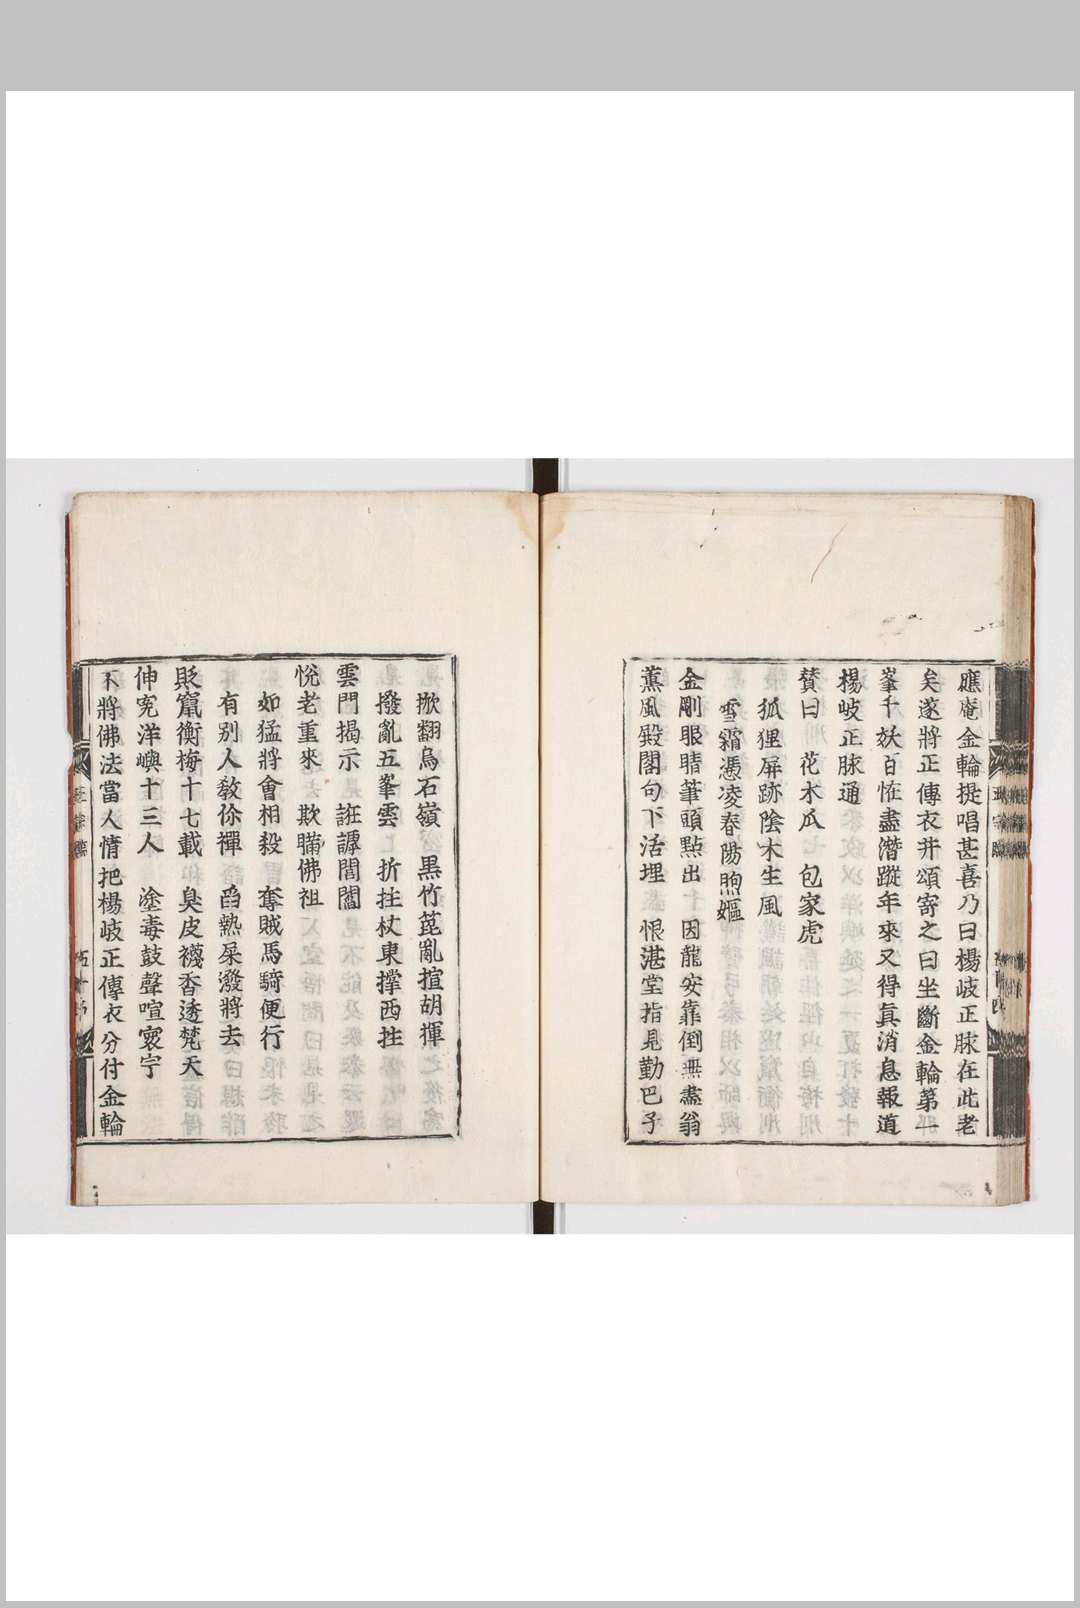 應庵金輪提唱甚喜乃曰楊岐正脉在此老
矣遂將正傳衣并頌寄之曰坐斷金輪第一
峯千妖百恠盡潛蹤年來又得眞消息報道
楊岐正脉通
賛曰 花木瓜 包家虎
狐狸屏跡陰木生風
雪霜憑凌春陽煦嫗
金剛眼睛筆頭點出 因龍安靠倒無盡翁
薫風殿閣句下活埋 恨湛堂指見勤巴子
掀翻烏石嶺 黒竹箆亂揎胡揮
撥亂五峯雲 折拄杖東撑西拄
雲門揭示 誑謼闇闔
悅老重來 欺瞞佛祖
如猛將會相殺 奪賊馬騎便行
有别人教你禪 舀熱屎潑將去
貶竄衡梅十七載 臭皮襪香透梵天
伸寃洋嶼十三人 塗毒鼓聲喧寰宇
不將佛法當人情把楊岐正傳衣分付金輪